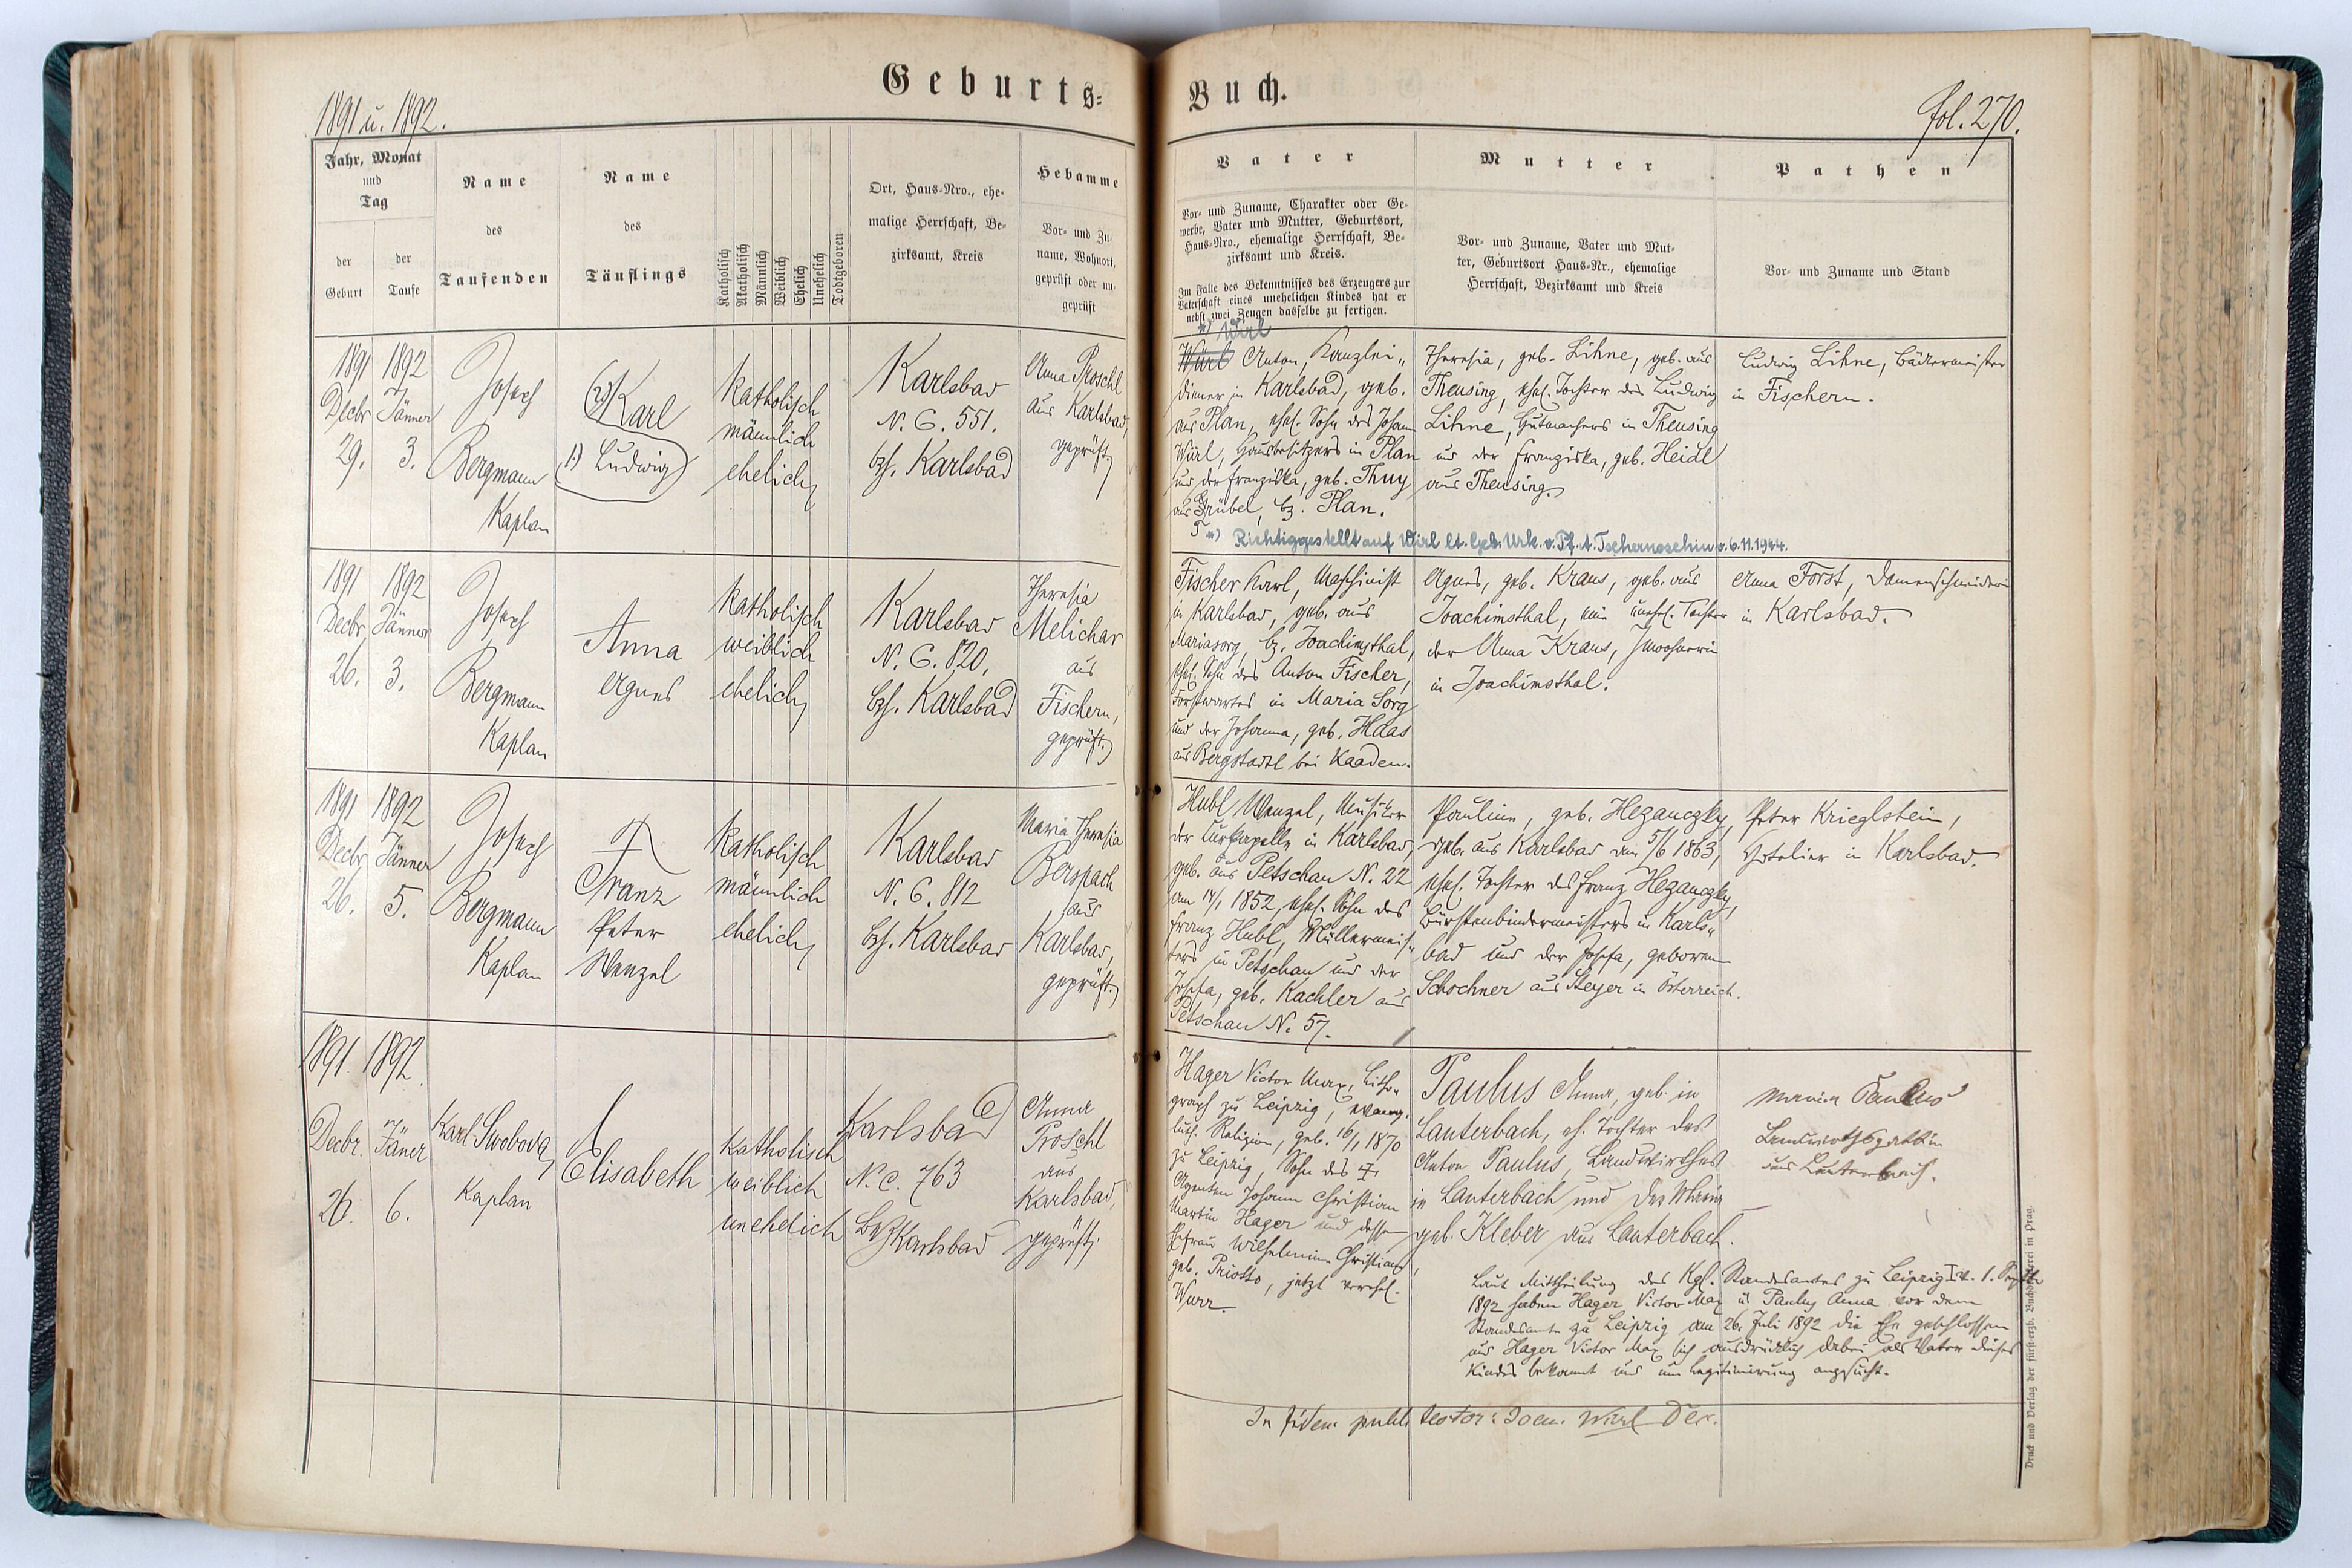 Geburts=
Buch.
1891 u. 1892.
fol. 270.
Jahr, Monat
und
Tag
der
Geburt
der
Taufe
Name
des
Taufenden
Name
des
Täuflings
Katholisch
Akatholisch
Männlich
Weiblich
Ehelich
Unehelich
Todtgeboren
Ort, Haus-Nro., ehe-
malige Herrschaft, Be-
zirksamt, Kreis
Hebamme
Vor- und Zu-
name, Wohnort,
geprüft oder un-
geprüft
Vater
Vor- und Zuname, Charakter oder Ge-
werbe, Vater und Mutter, Geburtsort,
Haus-Nro., ehemalige Herrschaft, Be-
zirksamt und Kreis.
Im Falle des Bekenntnisses des Erzeugers zur
Vaterschaft eines unehelichen Kindes hat er
nebst zwei Zeugen dasselbe zu fertigen.
Mutter
Vor- und Zuname, Vater und Mut-
ter, Geburtsort Haus-Nr., ehemalige
Herrschaft, Bezirksamt und Kreis
Pathen
Vor- und Zuname und Stand
1891
Decbr
29.
1892
Jänner
3.
Josef
Bergmann
Kaplan
2.) Karl
1.) Ludwig
katholisch
männlich
ehelich
Karlsbad
N. C. 551.
bzh. Karlsbad
Anna Proschl
aus Karlsbad,
geprüft.
*) Wirl
Würl Anton, Kanzlei„
diener in Karlsbad, geb.
aus Plan, ehel. Sohn des Johann
Würl, Hausbesitzers in Plan
und der Franziska, geb. Thuy
aus Grübel, bz. Plan.
Theresia, geb. Lihne, geb. aus
Theusing, ehel. Tochter des Ludwig
Lihne, Hutmachers in Theusing
und der Franziska, geb. Heidl
aus Theusing.
Ludwig Lihne, Bäckermeister
in Fischern.
*) Richtiggestellt auf Wirl lt. Geb. Urk. v. Pf. A. Tschernoschin v. 6.11.1944.
1891
Decbr
26.
1892
Jänner
3.
Josef
Bergmann
Kaplan
Anna
Agnes
katholisch
weiblich
ehelich
Karlsbad
N. C. 820.
bzh. Karlsbad
Theresia
Melichar
aus
Fischern,
geprüft.
Fischer Karl, Maschinist
in Karlsbad, geb. aus
Mariasorg, bz. Joachimsthal,
ehel. Sohn des Anton Fischer,
Forstwartes in Maria Sorg
und der Johanna, geb. Haas
aus Bergstadtl bei Kaaden.
Agnes, geb. Kraus, geb. aus
Joachimsthal, eine unehel. Tochter
der Anna Kraus,
in Joachimsthal.
Anna Forst, Damenschneiderin
in Karlsbad.
1891
Decbr
26.
1892
Jänner
5.
Josef
Bergmann
Kaplan
Franz
Peter
Wenzel
katholisch
männlich
ehelich
Karlsbad
N. C. 812
bzh. Karlsbad
Maria Theresia
Berspach
aus
Karlsbad,
geprüft.
Hubl Wenzel, Musiker
der Curkapelle in Karlsbad,
geb. aus Petschau N. 22
am 14/1 1852, ehel. Sohn des
Franz Hubl, Müllermeis„
ters in Petschau und der
Josefa, geb. Kachler aus
Petschau N. 57.
Pauline, geb. Heganczky,
geb. aus Karlsbad den 5/6 1863,
ehel. Tochter des Franz Heganczky,
Bürstenbindermeisters in Karls„
bad und der Josefa, geboren
Schochner aus Steyer in Österreich.
Peter Krieglstein,
Hotelier in Karlsbad.
1891.
Decbr.
26.
1892.
Jäner
6.
Karl Swoboda,
Kaplan
Elisabeth
katholisch
weiblich
unehelich
Karlsbad
N. C. 763
Bz Karlsbad
Anna
Proschl
aus
Karlsbad,
geprüft.
Hager Victor Max, Litho„
graph zu Leipzig, evang.
luth. Religion, geb. 16/1 1870
zu Leipzig, Sohn des †
Agenten Johann Christian
Martin Hager und dessen
Ehefrau Wilhelmine Christiane,
geb. Priotto, jetzt verehel.
Wurr.
Paulus Anna, geb. in
Lauterbach, eh. Tochter des
Anton Paulus, Landwirthes
in Lauterbach und der Maria
geb. Kleber aus Lauterbach.
Maria Paulus
Landwirthsgattin
aus Lauterbach.
Laut Mittheilung des Kgl. Standesamtes zu Leipzig I v. 1. Septbr
1892 haben Hager Victor Max u. Paulus Anna vor dem
Standesamte zu Leipzig am 26. Juli 1892 die Ehe geschlossen
und Hager Victor Max sich ausdrücklich dabei als Vater dieses
Kindes bekannt und um Legitimirung angesucht.
In fidem publ. testor: Wirl Dec.
Druck und Verlag der fürst-erzb. Buchdruckerei in Prag.